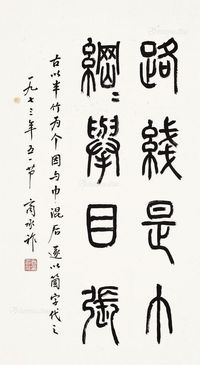 路綫是个
綱〻舉目張
古以半竹为个因与巾混后遂以箇字代之
一九七三年五一节 商承祚